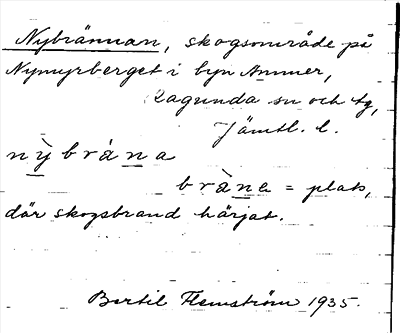 Nybrännan, skogsområde på
Nymyrberget i byn Ammer,
Ragunda sn och tg,
Jämtl. l.
nỳbràna
bràne = plats,
där skogsbrand härjat.
Bertil Flemström 1935.